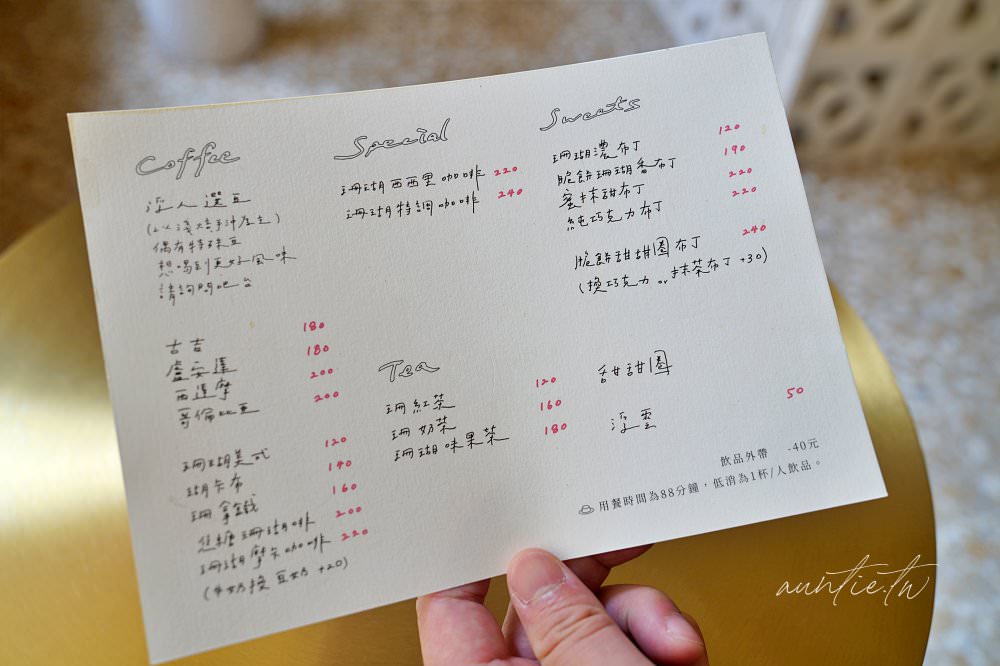 Coffee
浮人選豆
(以淺焙手沖為主)
偶有特殊豆
想喝到更好風味
請詢問吧台
古吉 180
盧安達 180
西達摩 200
哥倫比亞 200
珊瑚美式 120
瑚卡布 140
珊拿鐵 160
焦糖珊瑚咖啡 200
珊瑚摩卡咖啡 220
(牛奶換豆奶 +20)
Special
珊瑚西西里咖啡 220
珊瑚特調咖啡 240
Tea
珊紅茶 120
珊奶茶 160
珊瑚味果茶 180
Sweets
珊瑚濃布丁 120
脆餅珊瑚香布丁 190
蜜抹甜布丁 220
純巧克力布丁 220
脆餅甜甜圈布丁 240
(換巧克力 or 抹茶布丁 +30)
甜甜圈
浮雲 50
飲品外帶 -40元
用餐時間為88分鐘，低消為1杯/人飲品。
auntie.tw